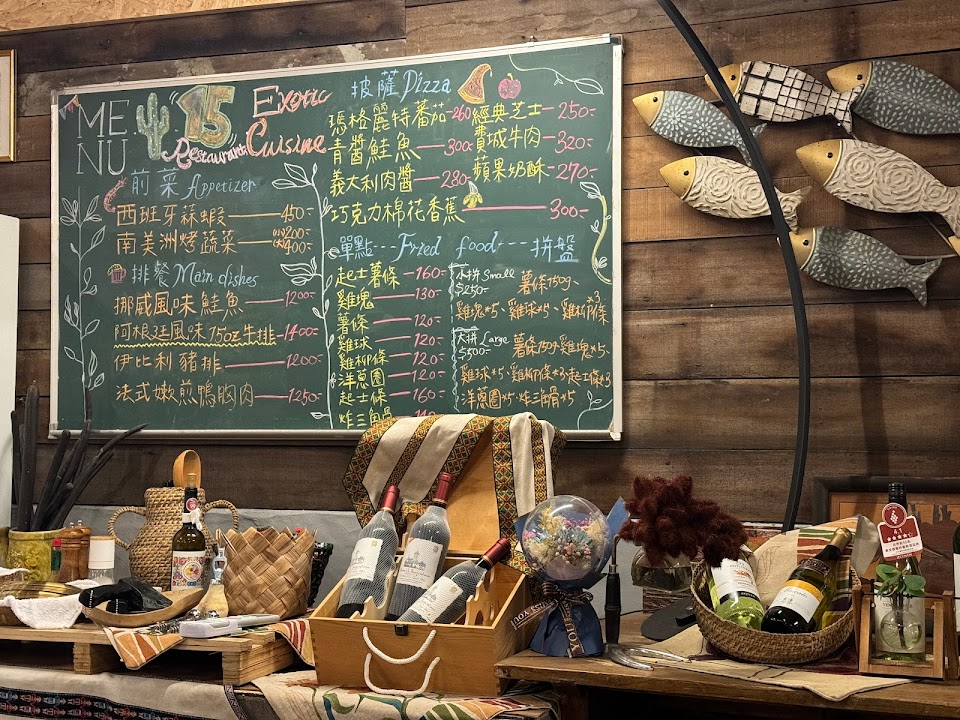 MENU
15
Exotic
Restaurant
Cuisine
前菜 Appetizer
西班牙蒜蝦 450-
南美洲烤蔬菜 (小)200- (大)400-
排餐 Main dishes
挪威風味鮭魚 1200-
阿根廷風味15oz牛排 1400-
伊比利豬排 1200-
法式嫩煎鴨胸肉 1250-
披薩 Pizza
瑪格麗特蕃茄 260
青醬鮭魚 300-
義大利肉醬 280-
經典芝士 250-
費城牛肉 320-
蘋果奶酥 270-
巧克力棉花香蕉 300-
單點---Fried food---拼盤
起士薯條 160-
雞塊 130-
薯條 120-
雞球 120-
雞柳條 120-
洋蔥圈 120-
起士條 160-
炸三角骨
小拼 Small $250- 薯條150g、
雞塊*5、雞球*5、雞柳條*3
大拼 Large $500- 薯條150g雞塊*5、
雞球*5、雞柳條*3起士條*3
洋蔥圈*5、炸三角骨*5